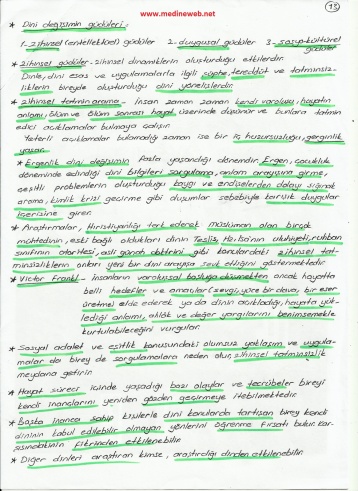 www.medineweb.net
13
* Dini değişimin güdüleri:
1- zihinsel (entellektüel) güdüler 2. duygusal güdüler 3- sosyo-kültürel güdüler
* zihinsel güdüler - zihinsel dinamiklerin oluşturduğu etkilerdir.
Dinle, dini esas ve uygulamalarla ilgili şüphe, tereddüt ve tatminsiz-
liklerin bireyde oluşturduğu dini yönelişlerdir.
* zihinsel tatmin arama - insan zaman zaman kendi varoluşu, hayatın
anlamı, ölüm ve ölüm sonrası hayat üzerinde düşünür ve bunlara tatmin
edici açıklamalar bulmaya çalışır.
Yeterli açıklamalar bulamadığı zaman ise bir iç huzursuzluğu, gerginlik
yaşar.
* Ergenlik dini değişimin fazla yaşandığı dönemdir. Ergen, çocukluk
döneminde edindiği dini bilgileri sorgulama, anlam arayışına girme,
çeşitli problemlerin oluşturduğu kaygı ve endişelerden dolayı sığınak
arama, kimlik krizi geçirme gibi durumlar sebebiyle karışık duygular
içerisine girer.
* Araştırmalar, Hıristiyanlığı terk ederek müslüman olan birçok
mühtedinin, eski bağlı oldukları dinin Teslis, Hz. İsa'nın uluhiyeti, ruhban
sınıfının otoritesi, asli günah doktrini gibi konulardaki zihinsel tat-
minsizliklerin onları yeni bir dini arayışa sevk ettiğini göstermektedir.
* Victor Frankl - insanların varoluşsal boşluğa düşmekten ancak hayatta
belli hedefler ve amaçlar (sevgi, yüce bir dava, bir eser
üretme) elde ederek ya da dinin açıkladığı, hayata yük-
lediği anlamı, ahlâk ve değer yargılarını benimsemekle
kurtulabileceğini vurgular.
* Sosyal adalet ve eşitlik konusundaki olumsuz yaklaşım ve uygula-
malar da birey de sorgulamalara neden olur, zihinsel tatminsizlik
meydana getirir.
* Hayat süreci içinde yaşadığı bazı olaylar ve tecrübeler bireyi
kendi inançlarını yeniden gözden geçirmeye itebilmektedir.
* Başka inanca sahip kişilerle dini konularda tartışan birey kendi
dininin kabul edilebilir olmayan yönlerini öğrenme fırsatı bulur. Kar-
şısındakinin fikrinden etkilenebilir.
* Diğer dinleri araştıran kimse, araştırdığı dinden etkilenebilir.